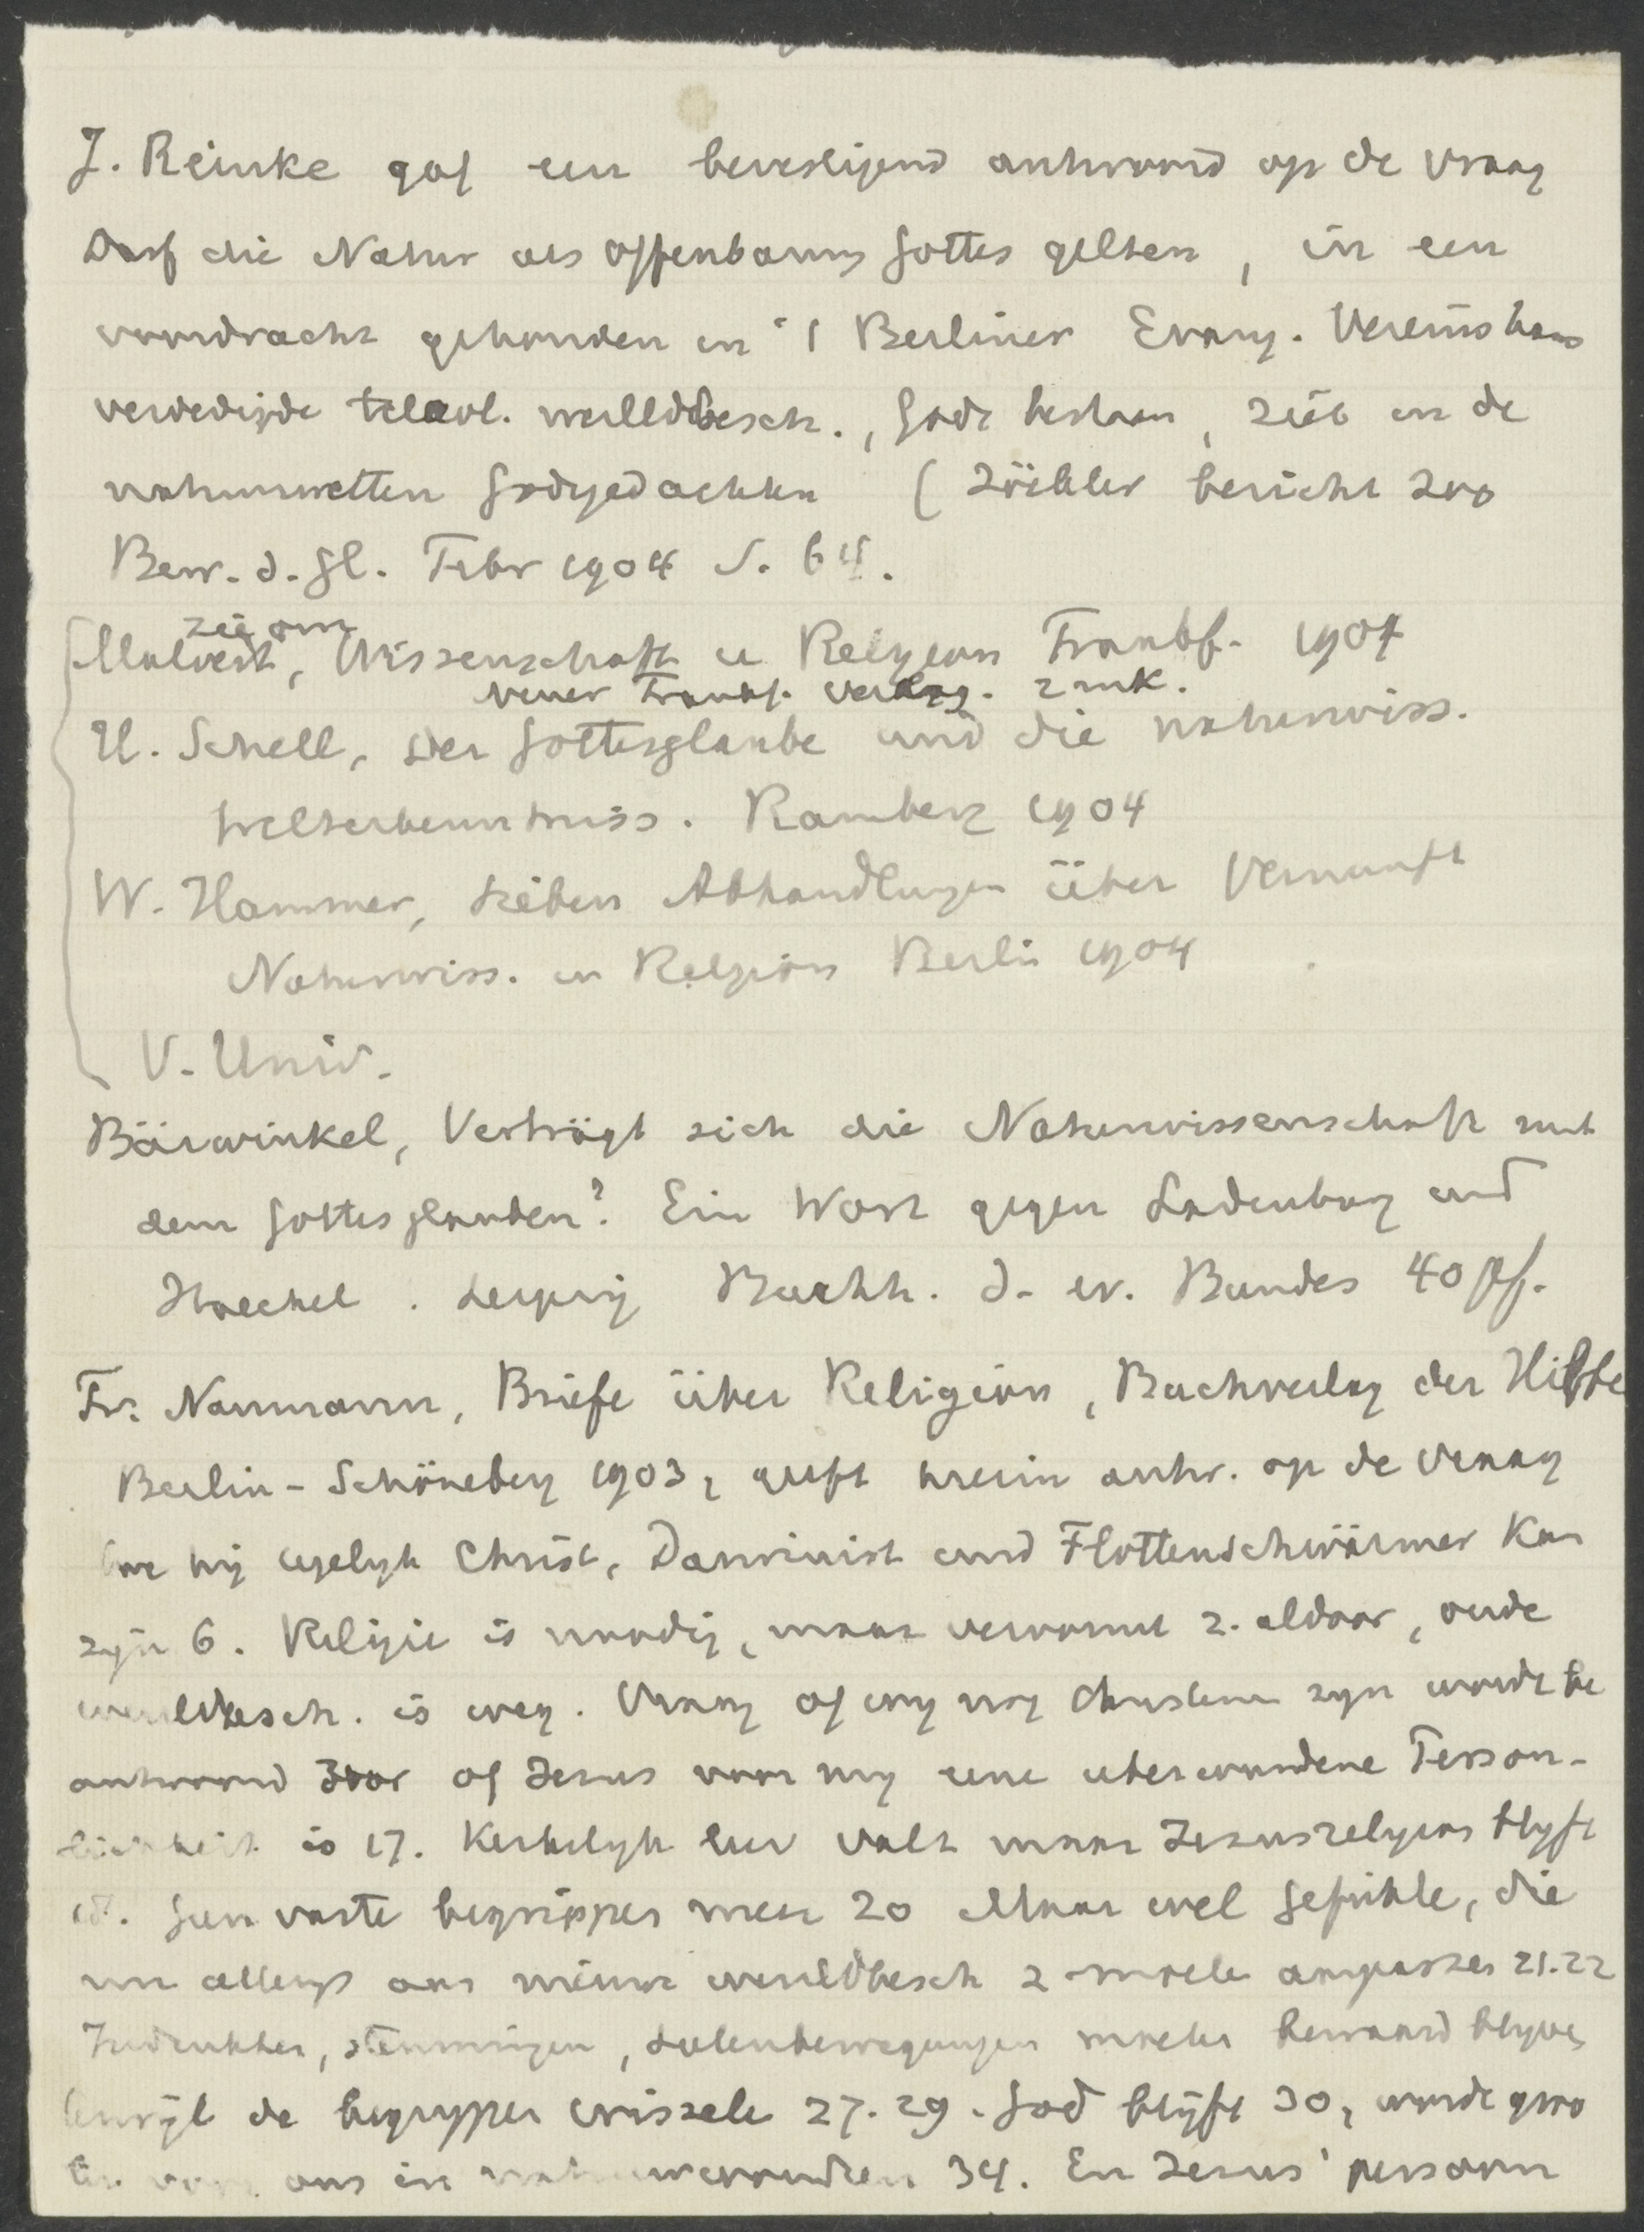 J. Reinke gaf een bevestigend antwoord op de vraag
Darf die Natur als Offenbarung Gottes gelten, in een
voordracht gehouden in 't Berliner Evang. Vereinshaus
verdedigde teleol. wereldbesch., Gods bestaan, zieb in de
natuurwetten Godsgedachten (Zöckler bericht zoo
Bew. d. Gl. Febr 1904 S. 64.
zie om
Malvert, Wissenschaft u Religion Frankf. 1904
Neuer Frankf. Verlag. 2 mk.
H. Schell, Der Gottesglaube und die naturwiss.
Welterkenntniss. Bamberg 1904
W. Hammer, Sieben Abhandlungen über Vernunft
Naturwiss. en Religion Berlin 1904
V. Univ.
Bärwinkel, Verträgt sich die Naturwissenschaft mit
dem Gottesglauben? Ein Wort gegen Ladenburg und
Haeckel. Leipzig Buchh. d. ev. Bundes 40 pf.
Fr. Naumann, Briefe über Religion, Buchverlag der Hilfe
Berlin-Schöneberg 1903, geeft hierin antw. op de vraag
hoe hij tegelijk Christ, Darwinist und Flottenschwärmer kan
zijn 6. Religie is noodig, maar vervormt z. aldoor, oude
wereldbesch. is weg. Vraag of wij nog Christenen zijn wordt be
antwoord door of Jezus voor mij eene überwundene Person-
lichkeit is 17. Kerkelijk leer valt maar Jezusreligion blijft
18. Geen vaste begrippen meer 20 Maar wel Gefühle, die
aan onze nieuwe wereldbesch z moeten aanpassen 21.22
Indrukken, stemmingen, Seelenbewegungen moeten bewaard blijven
terwijl de begrippen wisselen 27.29. God blijft 30, wordt groo
ter voor ons in 34. En Jezus' persoon